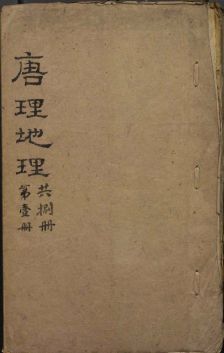 唐理地理
共捌冊
第壹冊